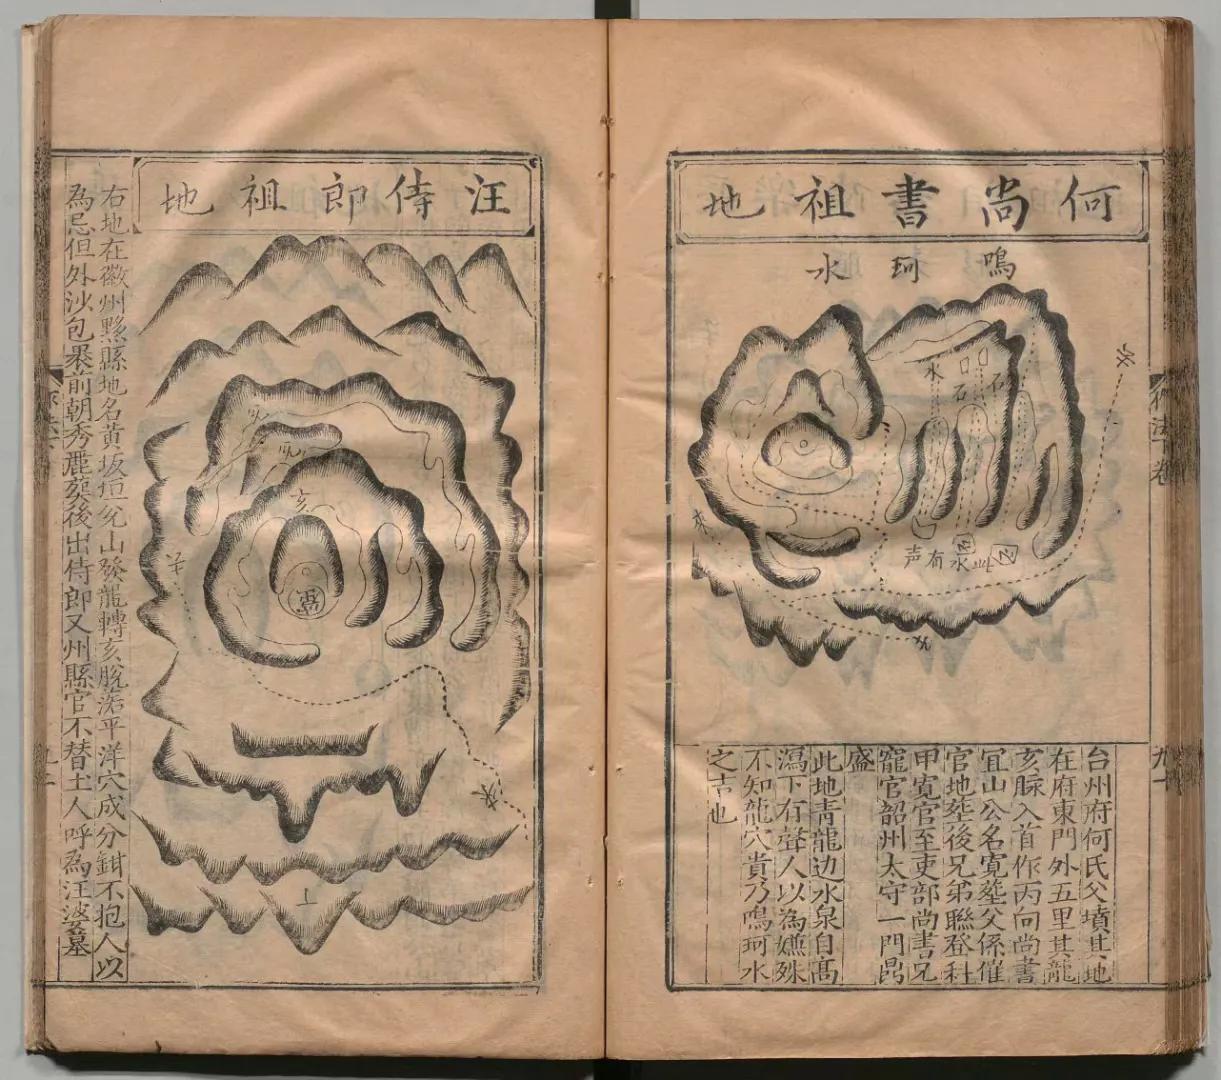 何尚書祖地
鳴珂水
水
口
石
石
來
水
声有水
台州府何氏父墳其地
在府東門外五里其龍
亥脉入首作丙向尚書
冝山公名寛塟父係催
官地塟後兄弟聯登科
甲寛官至吏部尚書兄
寵官韶州太守一門鼎
盛
此地青龍边水泉自髙
瀉下有聲人以為嫌殊
不知龍穴貴乃鳴珂水
之吉也
九十
汪侍郎祖地
亥
水
右地在徽州黟縣地名黃坂垣兊山發龍轉亥脫落平洋穴成分鉗不抱人以
為忌但外沙包裹前朝秀麗葬後出侍郎又州縣官不替土人呼為汪婆墓